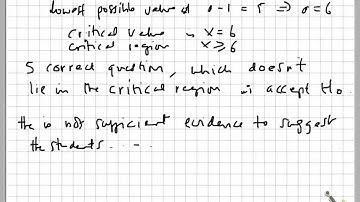 lowest possible value of a-1 = 5 ⇒ a = 6
critical value is x = 6
critical region x ≥ 6
5 correct question, which doesn't
lie in the critical region is accept H₀.
the is not sufficient evidence to suggest
the students . . . . .